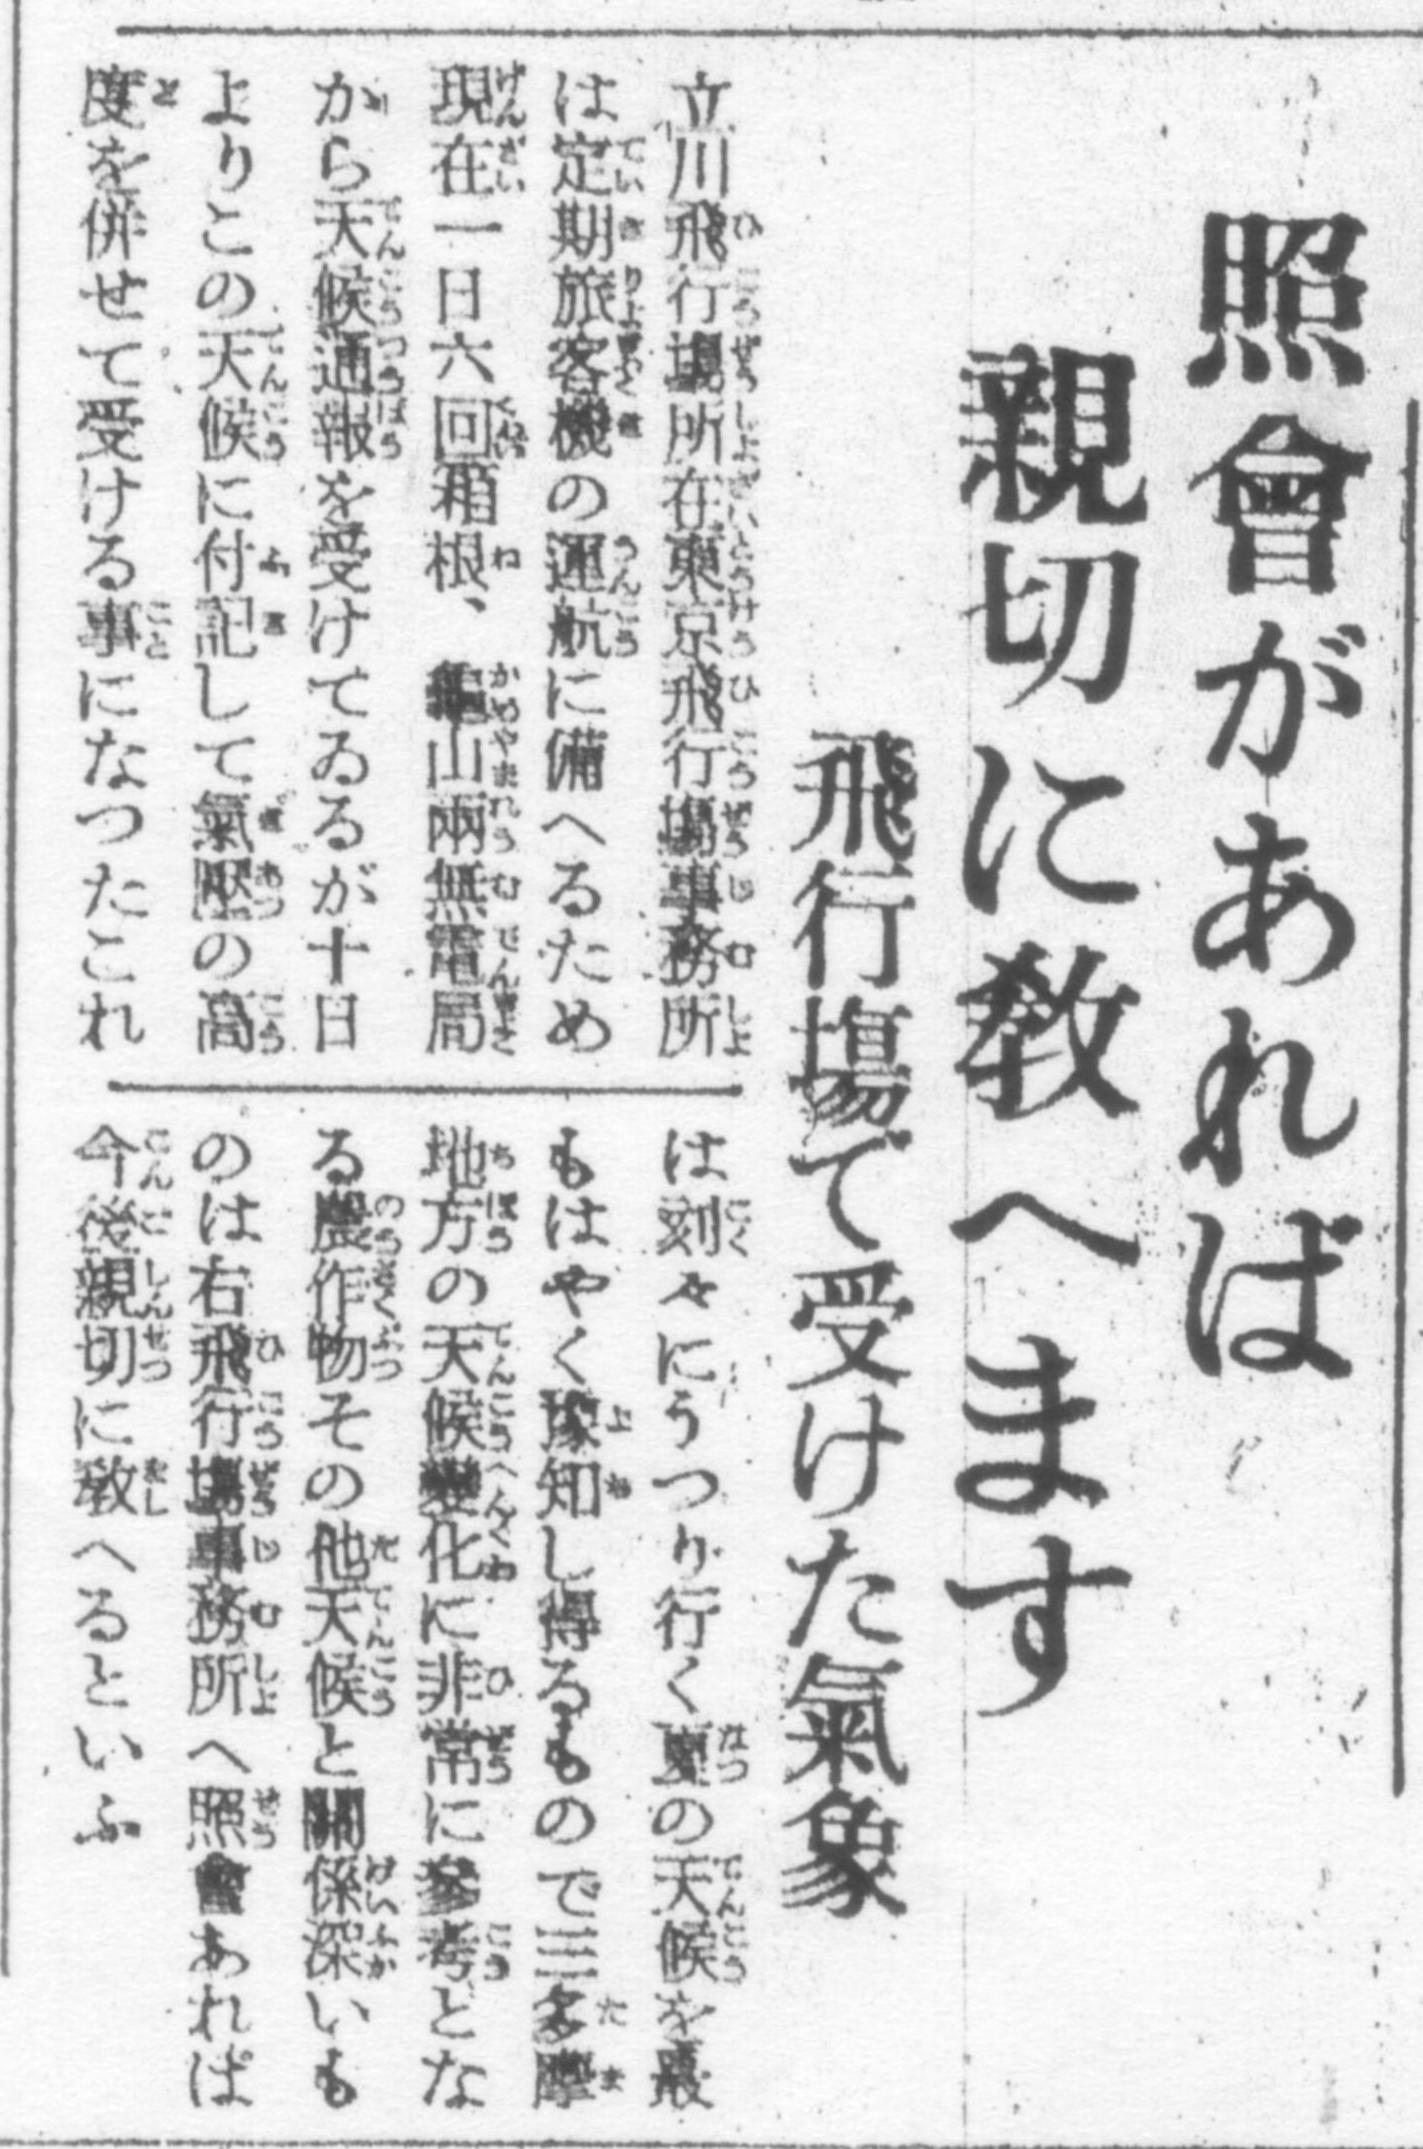 照會があれば
親切に敎へます
飛行塲で受けた氣象
立川飛行塲所在東京飛行塲事務所
は定期旅客機の運航に備へるため
現在一日六回箱根、龜山兩無電局
から天候通報を受けてゐるが十日
よりこの天候に付記して氣壓の高
度を併せて受ける事になつたこれ
は刻々にうつり行く夏の天候を最
もはやく豫知し得るもので三多摩
地方の天候變化に非常に參考とな
る農作物その他天候と關係深いも
のは右飛行塲事務所へ照會あれば
今後親切に敎へるといふ